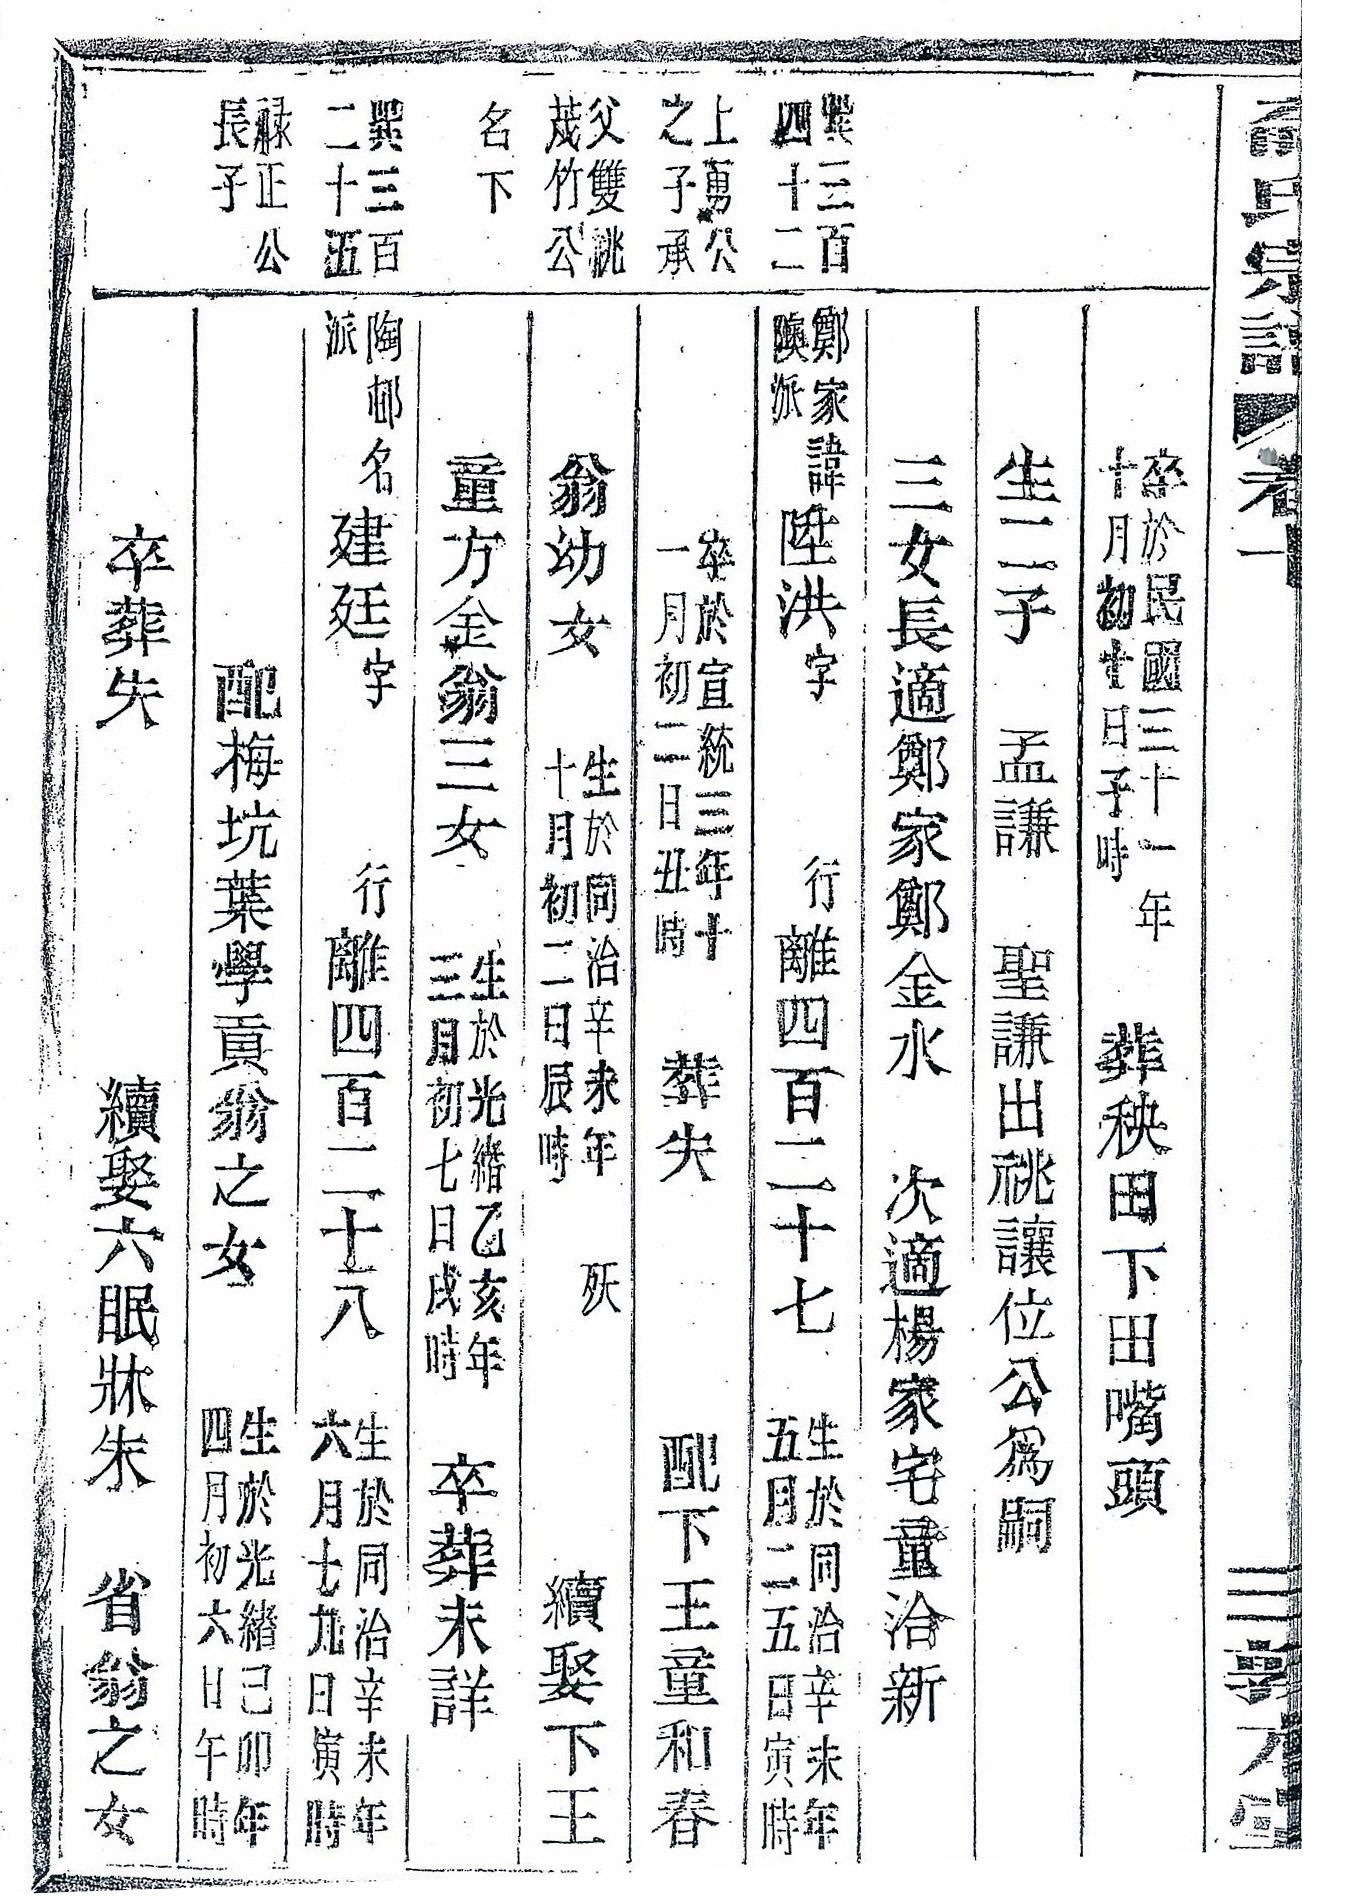 氏宗譜 卷十
卒於民國三十一年
十月初十日子時
葬秧田下田嘴頭
生二子 孟謙 聖謙出祧讓位公為嗣
三女長適鄭家鄭金水 次適楊家宅童洽新
巽三百
四十二
鄭家諱
派
陞洪字 行離四百二十七
生於同治辛未年
五月二五日寅時
上勇公
之子承
卒於宣統三年十
一月初二日丑時
葬失 配下王童和春
父雙祧
茂竹公
翁幼女
生於同治辛未年
十月初二日辰時
殀 續娶下王
名下
童方金翁三女
生於光緒乙亥年
三月初七日戌時
卒葬未詳
巽三百
二十五
陶邨名
派
建廷字 行離四百二十八
生於同治辛未年
六月十九日寅時
祿正公
長子
配梅坑葉學貢翁之女
生於光緒己卯年
四月初六日午時
卒葬失 續娶六眠牀朱 省翁之女